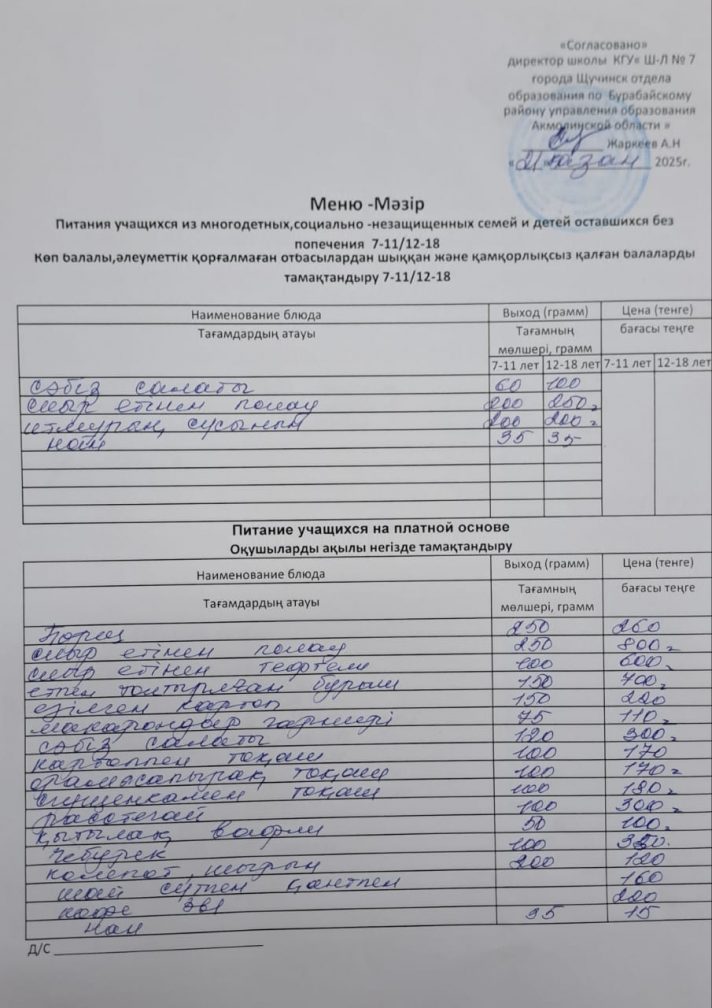 «Согласовано»
директор школы КГУ« Ш-Л № 7
города Щучинск отдела
образования по Бурабайскому
району управления образования
Акмолинской области »
Жаркеев А.Н
«21» қазан 2025г.
Меню -Мәзір
Питания учащихся из многодетных,социально -незащищенных семей и детей оставшихся без
попечения 7-11/12-18
Көп балалы,әлеуметтік қорғалмаған отбасылардан шыққан және қамқорлықсыз қалған балаларды
тамақтандыру 7-11/12-18
Наименование блюда Выход (грамм) Цена (тенге)
Тағамдардың атауы Тағамның бағасы теңге
мөлшері, грамм
7-11 лет 12-18 лет 7-11 лет 12-18 лет
сәбіз салаты 60 100
сиыр етінен полау 200 250г
итмұрын сусыны 200 200г
нан 35 35
Питание учащихся на платной основе
Оқушыларды ақылы негізде тамақтандыру
Наименование блюда Выход (грамм) Цена (тенге)
Тағамдардың атауы Тағамның бағасы теңге
мөлшері, грамм
Борщ 250 260
сиыр етінен полау 250 800г
сиыр етінен тефтели 100 600
етпен толтырылған бұрыш 150 700г
езілген картоп 150 220
макарондар гарнирі 75 110г
сәбіз салаты 120 300г
картоппен тоқаш 100 170
орамжапырақ тоқаш 100 170г
сгущенкамен тоқаш 100 180г
100 300г
вафли 50 100г
чебурек 100
компот, шырын 200 120
шай сүтпен қантпен 160
кофе 3в1 220
нан 35 15
Д/С